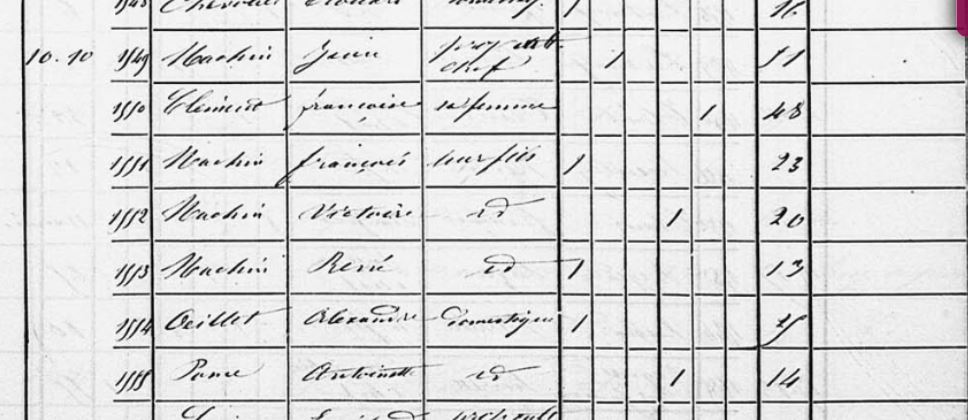 1548 16
10. 10 1549 Machin Jean prop cult 1 51
chef
1550 Clément françoise sa femme 1 48
1551 Machin françois leur fils 1 23
1552 Machin Victoire id 1 20
1553 Machin René id 1 13
1554 Oeillet Alexandre domestique 1 25
1555 Antoinette id 1 14